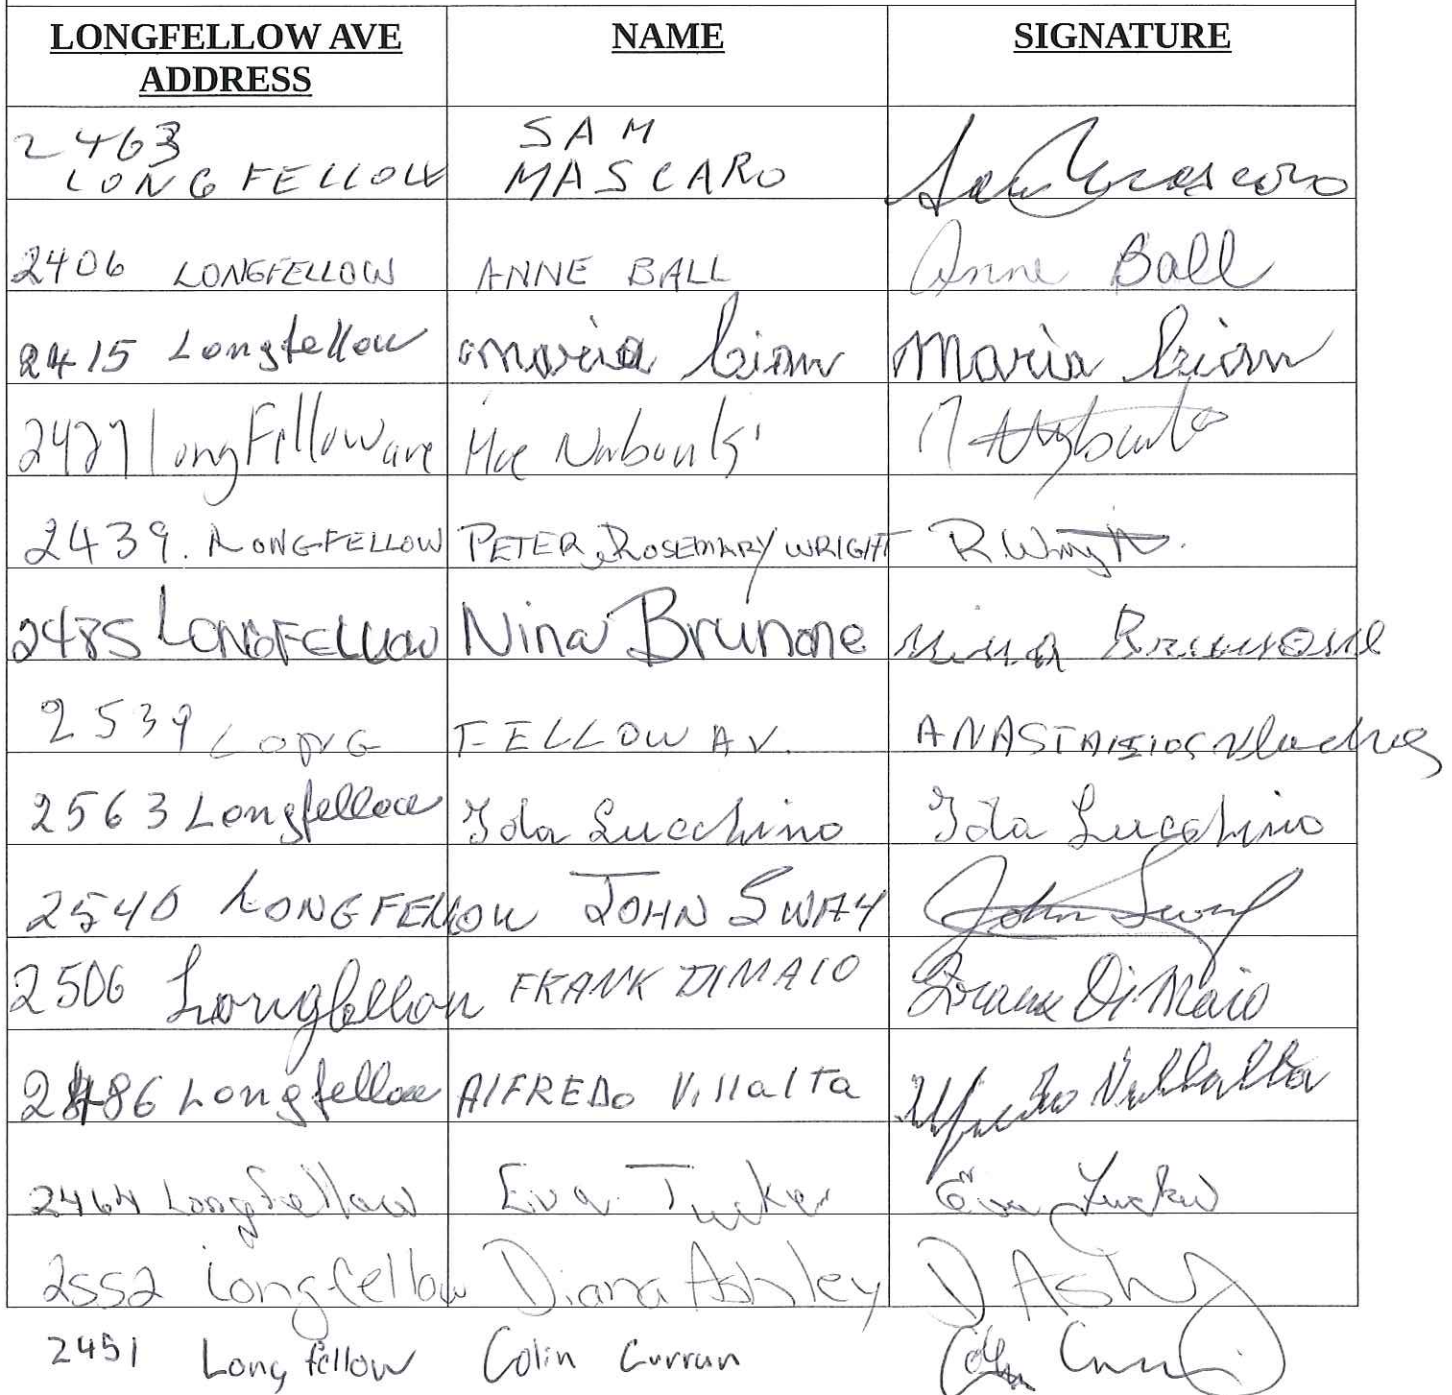 LONGFELLOW AVE NAME SIGNATURE
ADDRESS
2463 SAM
LONGFELLOW MASCARO Sam Mascaro
2406 LONGFELLOW ANNE BALL Anne Ball
2415 Longfellow Maria Maria
2427 Longfellow ave
2439. LONGFELLOW PETER ROSEMARY WRIGHT R. Wright.
2485 LONGFELLOW Nina Brunone Nina Brunone
2539 LONG FELLOW AV. ANASTASIOS
2563 Longfellow Ida Lucchino Ida Lucchino
2540 LONGFELLOW JOHN SWAY John Sway
2506 Longfellow FRANK DIMAIO Frank DiMaio
2486 Longfellow AlFREDO Villalta Alfredo Villalta
2464 Longfellow Eva Tucker Eva Tucker
2552 Longfellow Diana Ashley D Ashley
2451 Longfellow Colin Curran Colin Curran